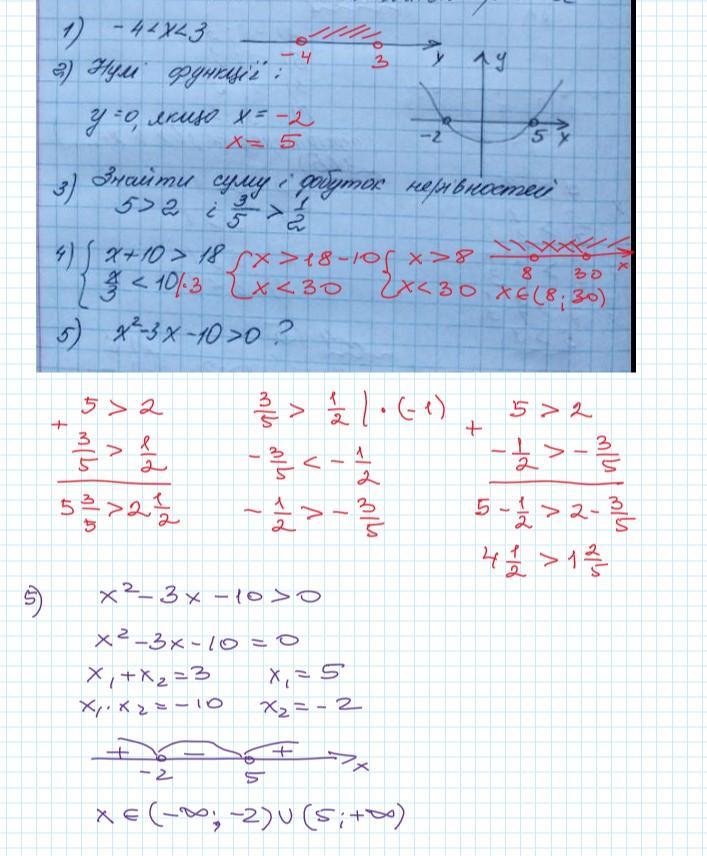 1) -4<x<3
-4 3 x
2) Нулі функції:
y=0, якщо x= -2
x= 5
y
-2 5 x
3) Знайти суму і добуток нерівностей
5>2 і 3/5 > 1/2
4) { x+10>18 { x>18-10 { x>8
x/3 < 10 |·3 { x<30 { x<30 x∈(8; 30)
8 30 x
5) x²-3x-10>0 ?
+ 5 > 2
3/5 > 1/2
5 3/5 > 2 1/2
3/5 > 1/2 | · (-1)
-3/5 < -1/2
-1/2 > -3/5
+ 5 > 2
-1/2 > -3/5
5 - 1/2 > 2 - 3/5
4 1/2 > 1 2/5
5) x²-3x-10>0
x²-3x-10=0
x₁+x₂=3 x₁=5
x₁·x₂=-10 x₂=-2
+ - +
-2 5 x
x∈(-∞; -2)∪(5; +∞)